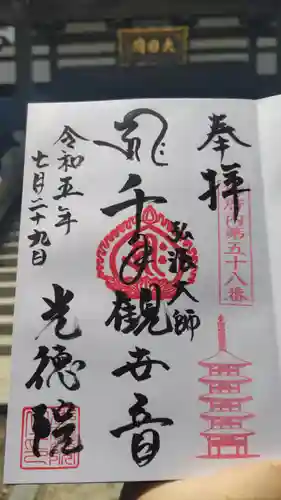 奉拝
弘法大師
千手観世音
令和五年
七月二十九日
光徳院
第五十八番